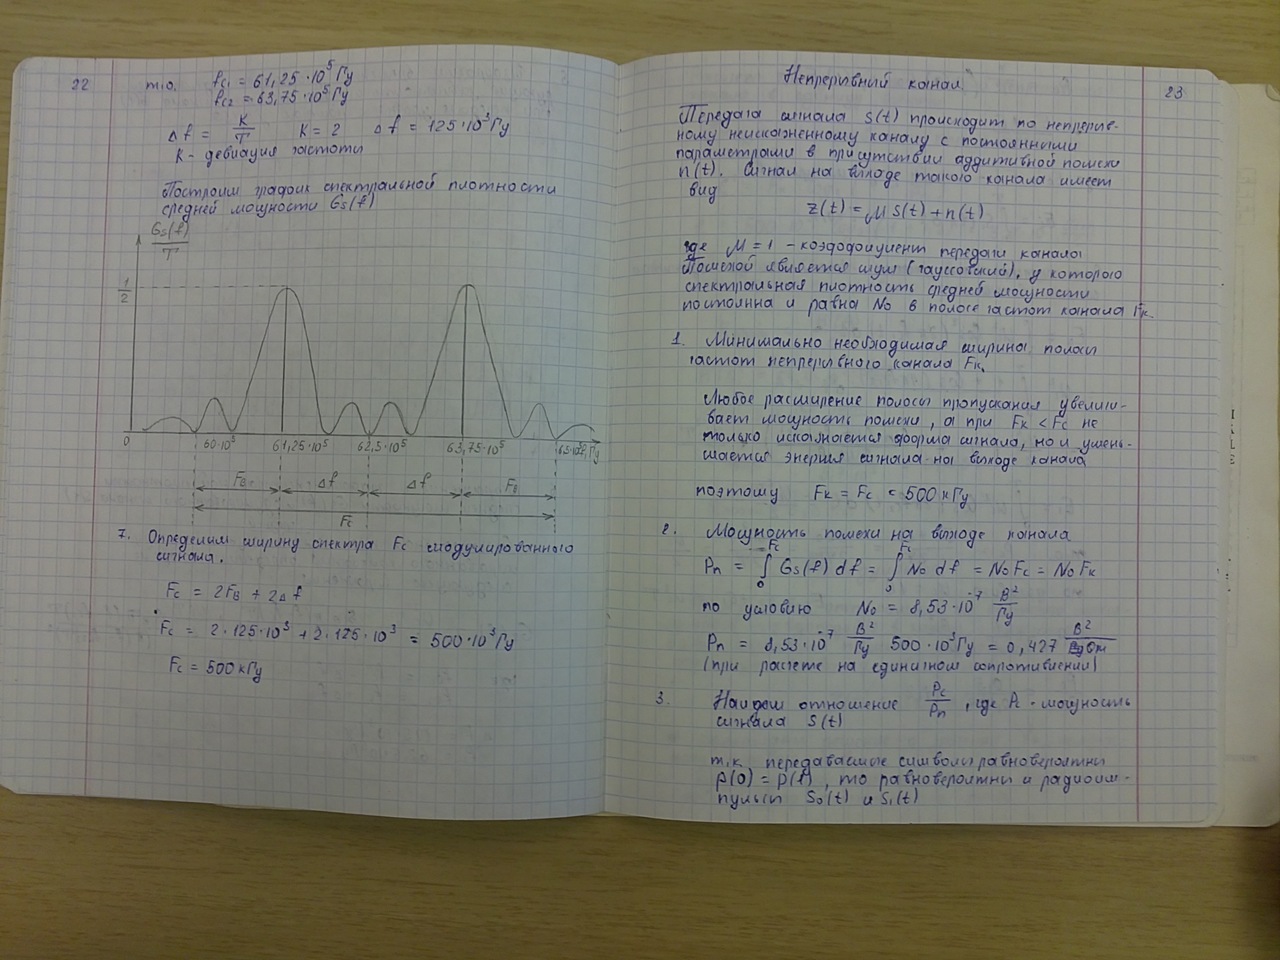 22
т.о. fc1 = 61,25·10^5 Гц
fc2 = 63,75·10^5 Гц
Δf = K/T K = 2 Δf = 125·10^3 Гц
K - девиация частоты
Построим график спектральной плотности
средней мощности Gs(f)
Gs(f)/T
1/2
0 60·10^5 61,25·10^5 62,5·10^5 63,75·10^5 65·10^5 f, Гц
FB Δf Δf FB
Fc
7. Определим ширину спектра Fc модулированного
сигнала.
Fc = 2FB + 2Δf
Fc = 2·125·10^3 + 2·125·10^3 = 500·10^3 Гц
Fc = 500 кГц
Непрерывный канал
23
Передача сигнала s(t) происходит по непрерыв-
ному неискаженному каналу с постоянными
параметрами в присутствии аддитивной помехи
n(t). Сигнал на выходе такого канала имеет
вид
z(t) = μ s(t) + n(t)
где μ = 1 - коэффициент передачи канала
Помехой является шум (гауссовский), у которого
спектральная плотность средней мощности
постоянна и равна N0 в полосе частот канала Fк.
1. Минимально необходимая ширина полосы
частот непрерывного канала Fк.
Любое расширение полосы пропускания увеличи-
вает мощность помехи, а при Fк < Fc не
только искажается форма сигнала, но и умень-
шается энергия сигнала на выходе канала
поэтому Fк = Fc = 500 кГц
2. Мощность помехи на выходе канала
Pп = ∫₀^Fc Gs(f) df = ∫₀^Fc N0 df = N0 Fc = N0 Fк
по условию N0 = 8,53·10^-7 В²/Гц
Pп = 8,53·10^-7 В²/Гц 500·10^3 Гц = 0,427 В²/Ом
(при расчете на единичном сопротивлении)
3. Найдем отношение Pc/Pп, где Pc - мощность
сигнала s(t)
т.к. передаваемые символы равновероятны
p(0) = p(1), то равновероятны и радиоим-
пульсы S0(t) и S1(t)